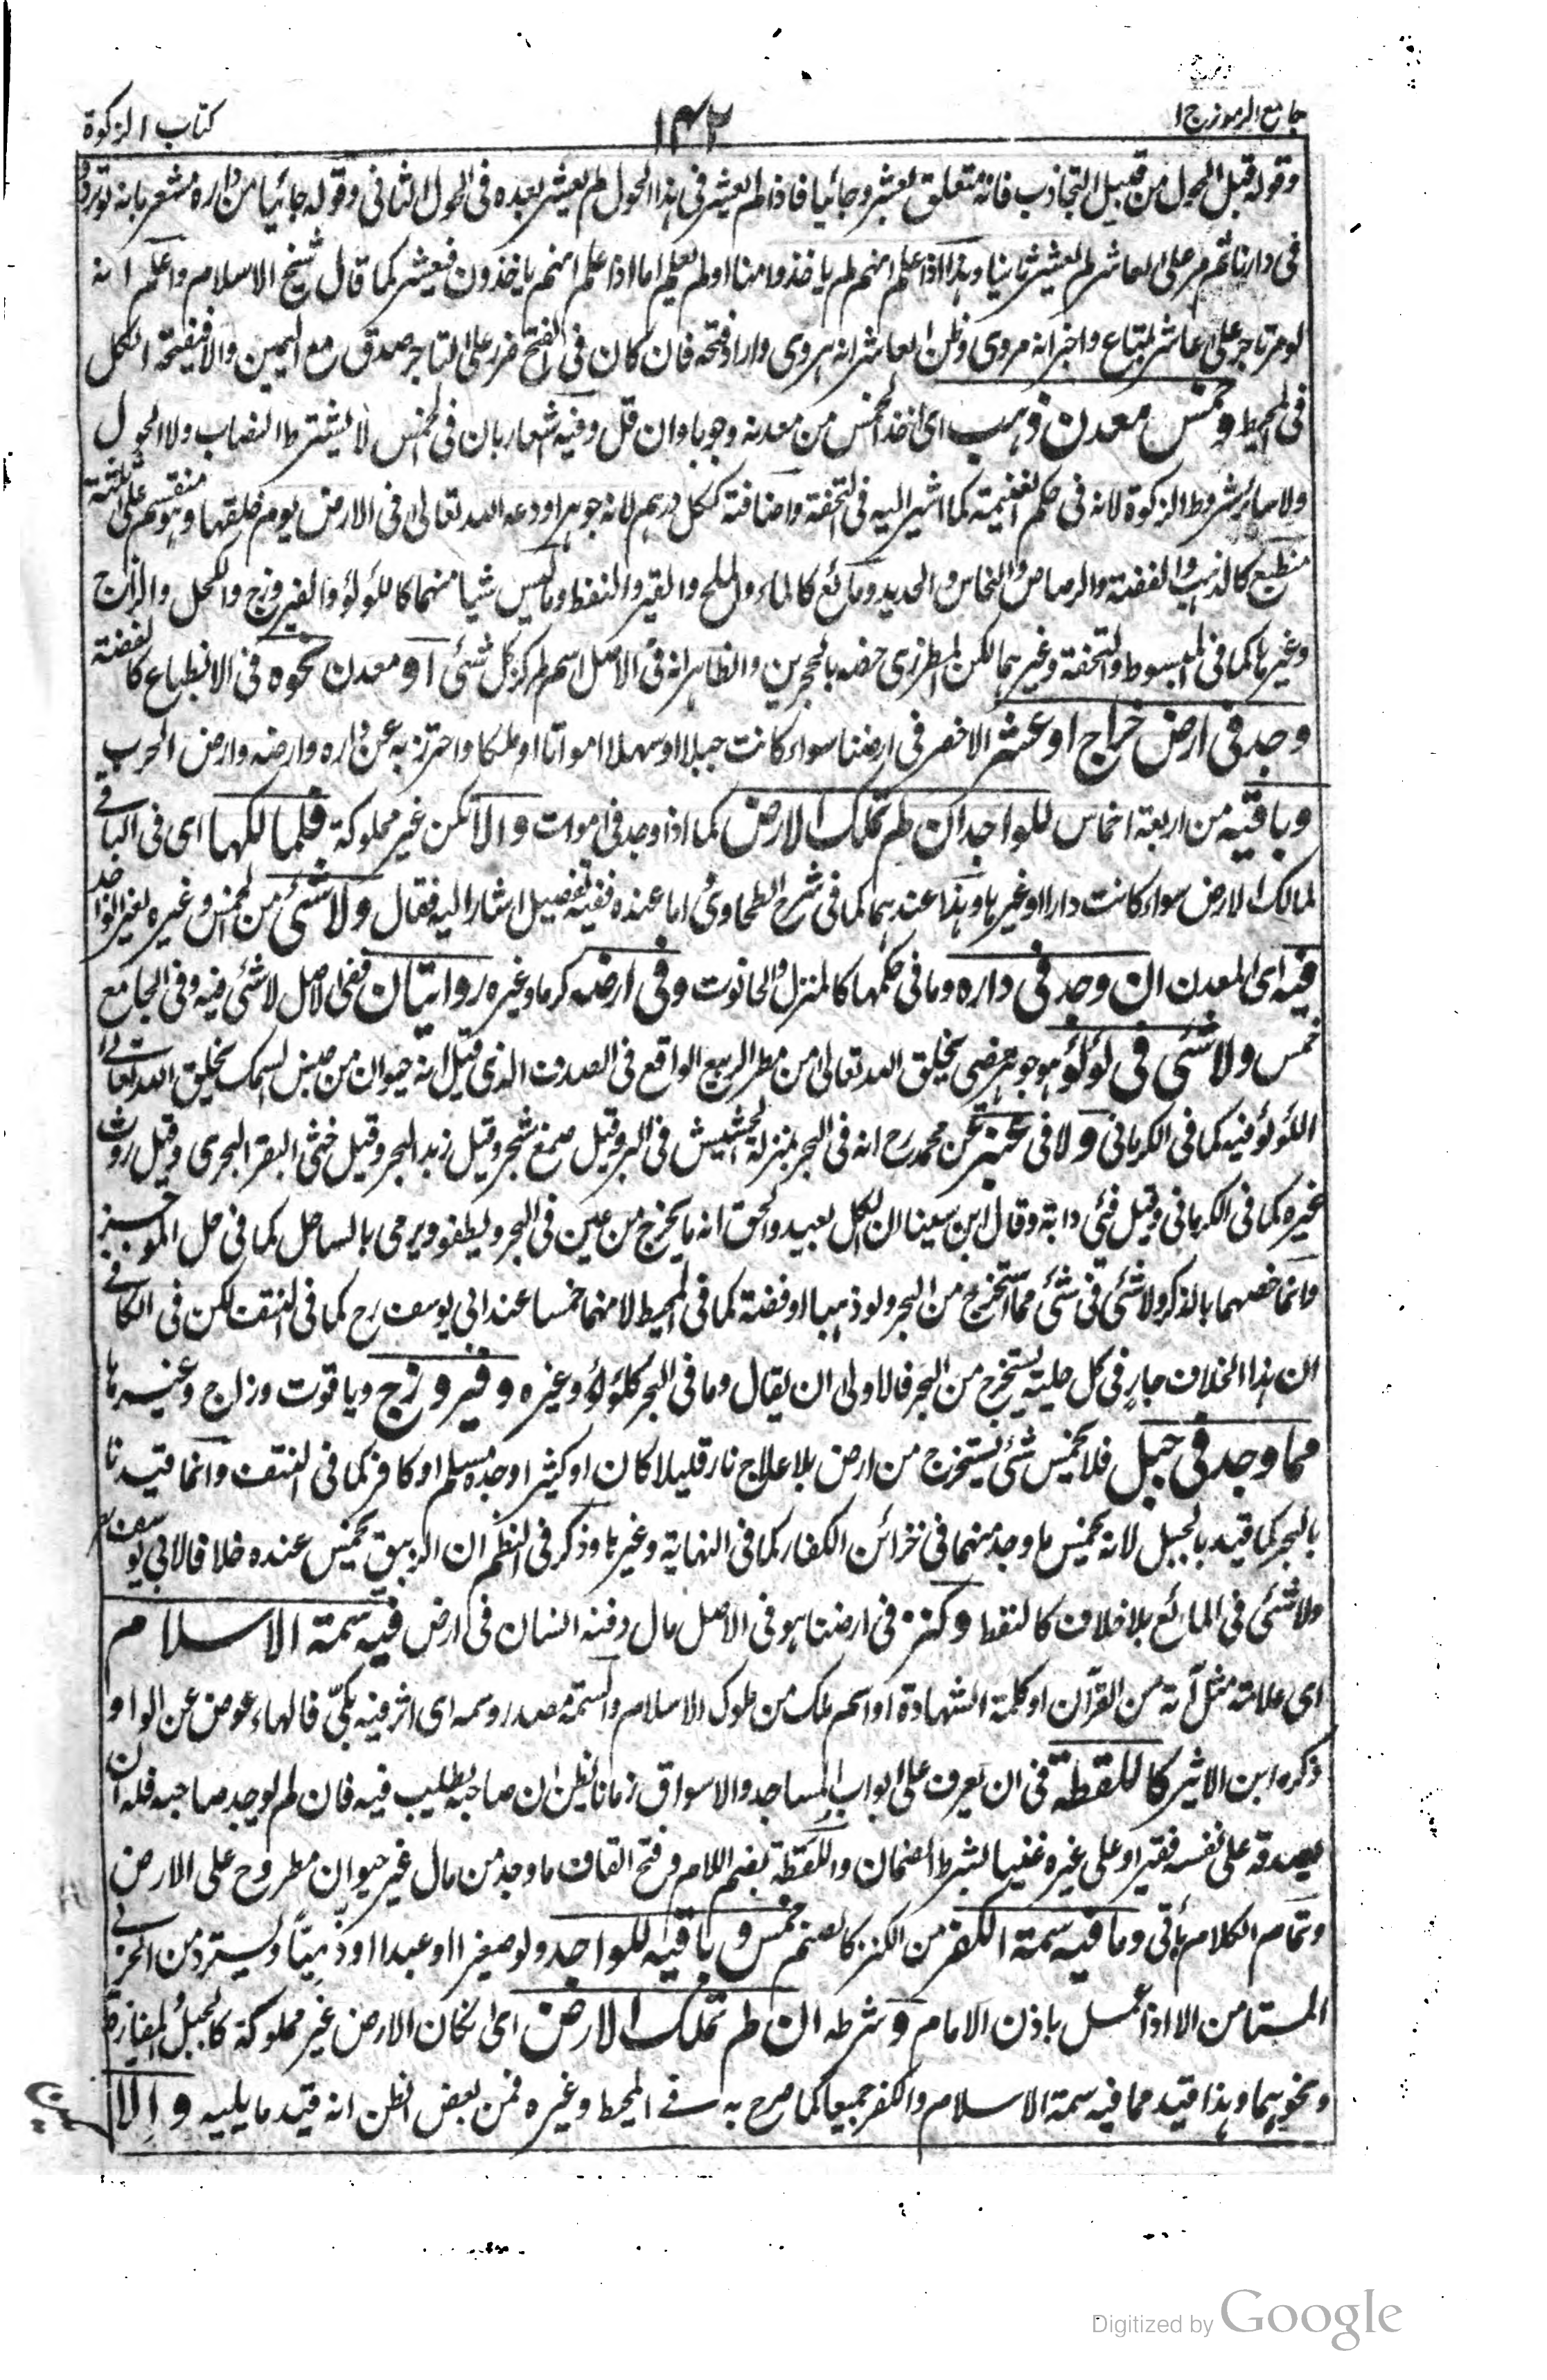 جامع الرموز ج١
١٤٢
كتاب الزكوة
وقوله قبل الحول من قبيل التجاذب فانه متعلق بعشر وجائيا فاذا لم يعشر فى هذا الحول لم يعشر بعده فى الحول الثانى وقوله جائيا من داره مشعر بانه لو تردد
فى دارنا ثم مر على العاشر لم يعشر ثانيا وهذا اذا علم انهم لم ياخذوا منا او لم يعلم اما اذا علم انهم ياخذون فيعشر كما قال شيخ الاسلام واعلم انه
لو مر تاجر على عاشر بمتاع واخبر انه مروى وظن العاشر انه هروى واراد فتحه فان كان فى الفتح ضرر على التاجر صدق مع اليمين والا فيفتحه الكل
فى المحيط وخمس معدن ذهب اى اخذ الخمس من معدنه وجوبا وان قل وفيه اشعار بان فى الخمس لا يشترط النصاب ولا الحول
ولا سائر شروط الزكوة لانه فى حكم الغنيمة كما اشير اليه فى التحفة واضافة ككل درهم لانه جوهر اودعه الله تعالى فى الارض يوم خلقها وهو منقسم على ثلثة
منطبع كالذهب والفضة والرصاص والنحاس والحديد ومائع كالماء والملح والقير والنفط وما ليس شيا منهما كاللؤلؤ والفيروزج والكحل والزاج
وغيرها كما فى المبسوط والتحفة وغيرهما لكن المطرزى خصه بالحجرين والظاهر انه فى الاصل اسم لمركز كل شئ او معدن نحوه فى الانطباع كالفضة
وجد فى ارض خراج او عشر الاخصر فى ارضنا سواء كانت جبلا او سهلا او مواتا او ملكا واحترز به عن داره وارضه وارض الحرب
وباقيه من اربعة اخماس للواجد ان لم تملك الارض كما اذا وجد فى موات والا تكن غير مملوكة فلمالكها اى فى الباقى
لمالك الارض سواء كانت دارا او غيرها وهذا عندهما كما فى شرح الطحاوى اما عنده ففيه تفصيل اشار اليه فقال ولا شئ من الخمس وغيره لغير الواجد
فيه اى المعدن ان وجد فى داره وما فى حكمها كالمنزل والحانوت وفى ارضه كرما وغيره روايتان ففى الاصل لا شئ فيه وفى الجامع
خمس ولا شئ فى لؤلؤ هو جوهر مضى يخلق الله تعالى من مطر الربيع الواقع فى الصدف الذى قيل انه حيوان من جنس السمك يخلق الله تعالى
اللؤلؤ فيه كما فى الكرمانى ولا فى عنبر عن محمد رح انه فى البحر بمنزلة الحشيش فى البر وقيل صمغ شجر وقيل زبد البحر وقيل خثى البقر البحرى وقيل روث
غيره كما فى الكرمانى وقيل قئ دابة وقال ابن سينا ان الكل بعيد والحق انه ما يخرج من عين فى البحر ويطفو ويرمى بالساحل كما فى حل الموجز
وانما خصهما بالذكر ولا شئ فى شئ مما استخرج من البحر ولو ذهبا او فضة كما فى المحيط لا منهما خمسا عند ابى يوسف رح كما فى النتف لكن فى الكافى
ان هذا الخلاف جار فى كل حلية يستخرج من البحر فالاولى ان يقال وما فى البحر كلؤلؤ وغيره وفيروزج وياقوت وزاج وغيرها
مما وجد فى جبل فلا يخمس شئ يستخرج من ارض بلا علاج نار قليلا كان او كثيرا وجده مسلم او كافر كما فى النتف وانما قيدنا
بالبحر كما قيد بالجبل لانه يخمس ما وجد منهما فى خزائن الكفار كما فى النهاية وغيرها وذكر فى النظم ان الزيبق يخمس عنده خلافا لابى يوسف
ولا شئ فى المائع بلا خلاف كالنفط وكنز فى ارضنا هو فى الاصل مال دفنه انسان فى ارض فيه سمة الاسلام
اى علامة مثل آية من القرآن او كلمة الشهادة او اسم ملك من ملوك الاسلام والسمة مصدر وسمه اى اثر فيه بكىّ فالهاء عوض عن الواو
ذكره ابن الاثير كاللقطة فى ان يعرف على ابواب المساجد والاسواق زمانا يظن ان صاحبه يطلب فيه فان لم يوجد صاحبه فله ان
يصدقه على نفسه فقيرا وعلى غيره غنيا بشرط الضمان واللقطة بضم اللام وفتح القاف ما وجد من مال غير حيوان مطروح على الارض
وتمام الكلام يأتى وما فيه سمة الكفر من الكنز كالصنم خمس وباقيه للواجد ولو صغيرا او عبدا او ذميّا ويسترد من الحربى
المستامن الا اذا عمل باذن الامام وشرطه ان لم تملك الارض اى تكان الارض غير مملوكة كالجبل والمفازة
ونحوهما وهذا قيد مما فيه سمة الاسلام والكفر جميعا كما صرح به فى المحيط وغيره فمن بعض الظن انه قيد ما يليه والا
Digitized by Google